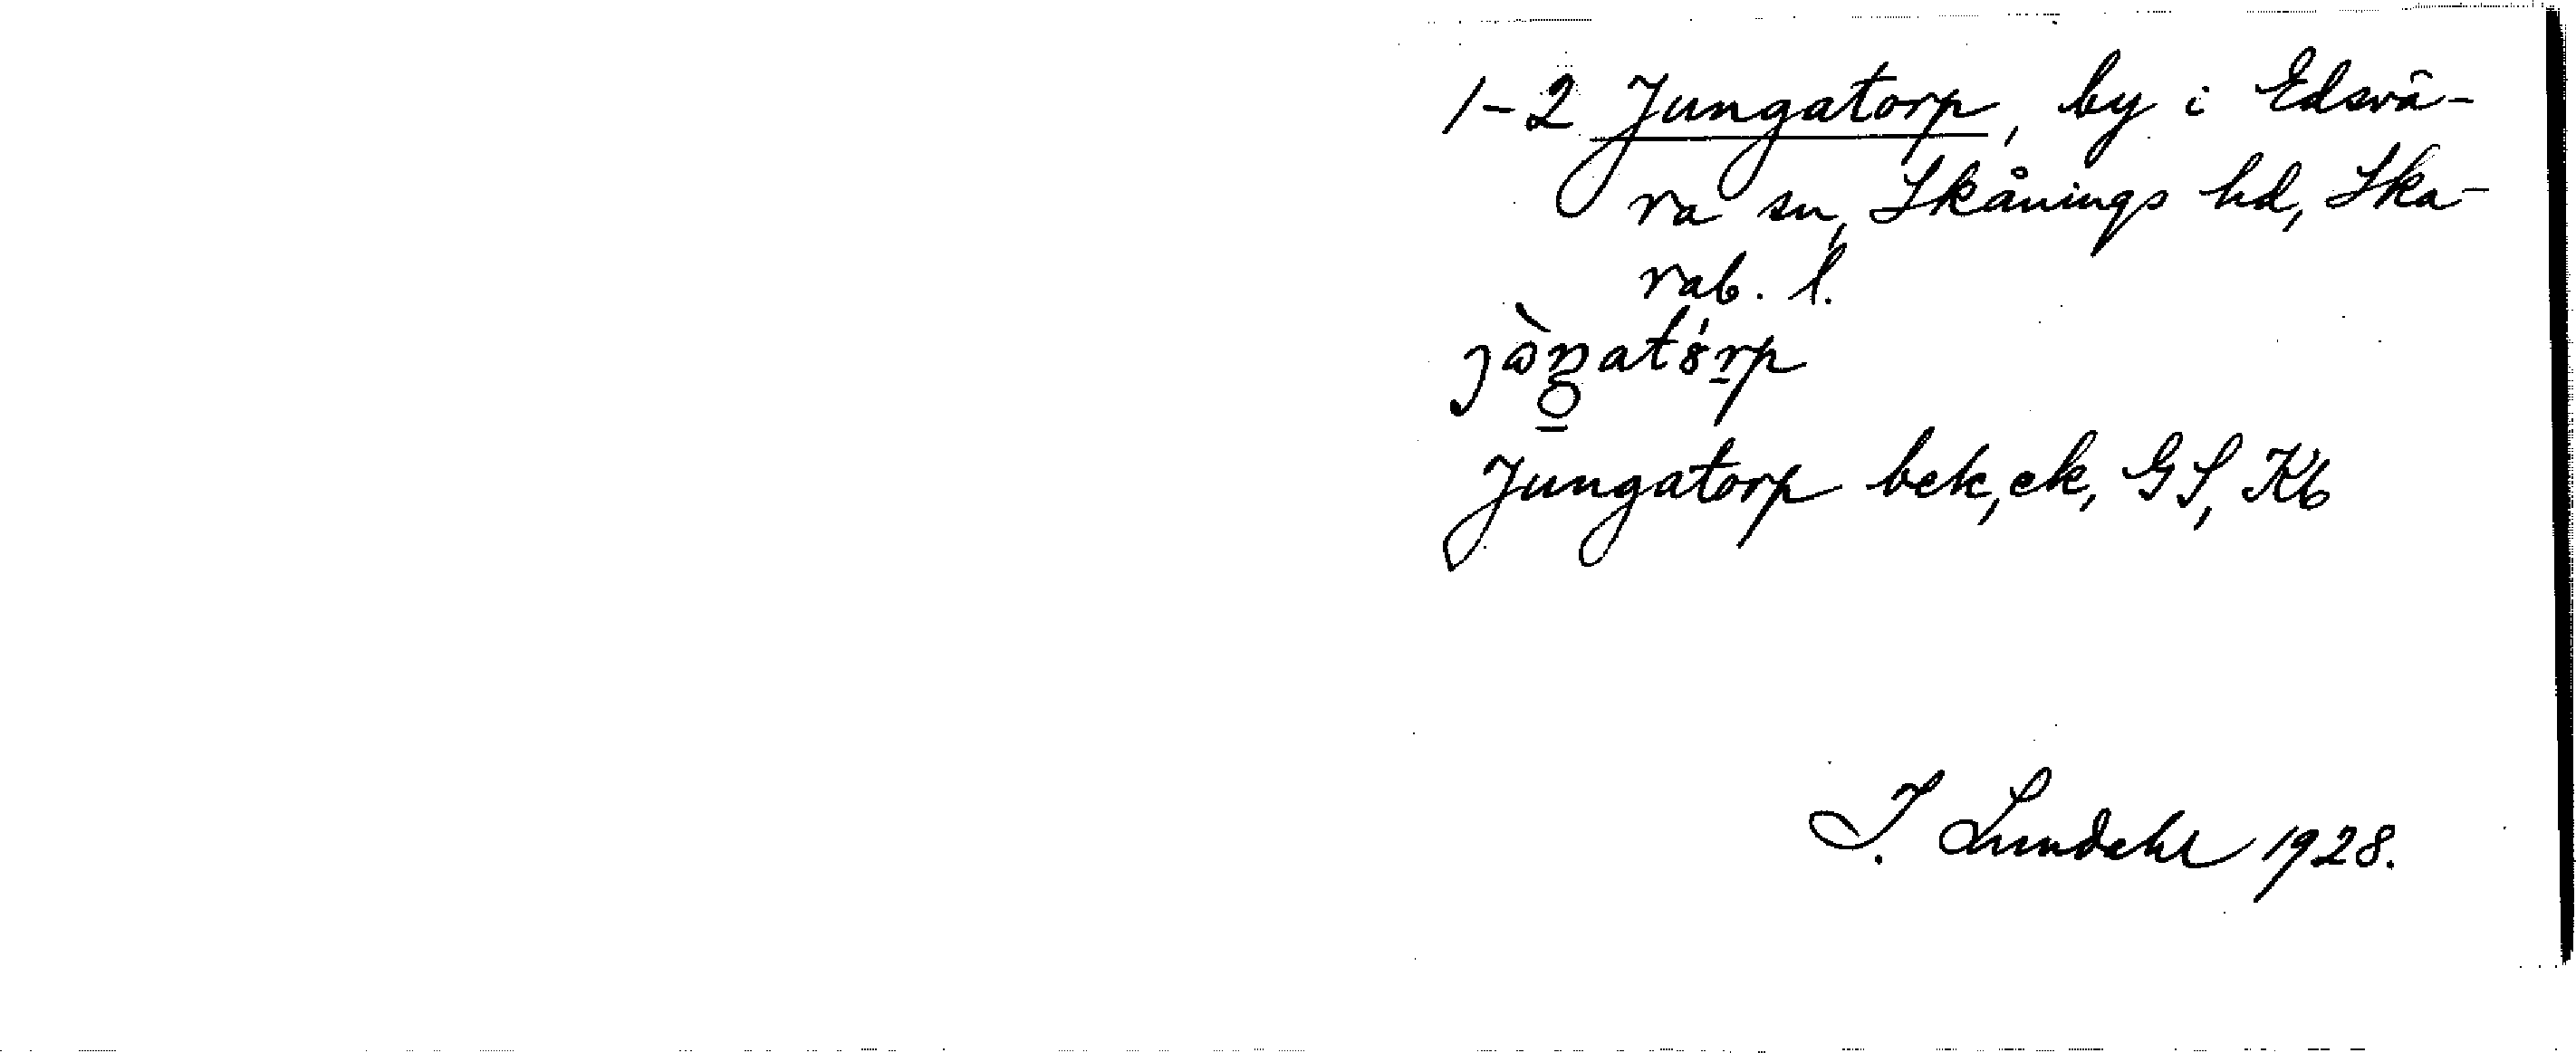 1-2 Jungatorp, by i Edsvä-
ra sn, Skånings hd, Ska-
rab. l.
Jungatorp bek, ek, GS, Kb
I. Lundahl 1928.